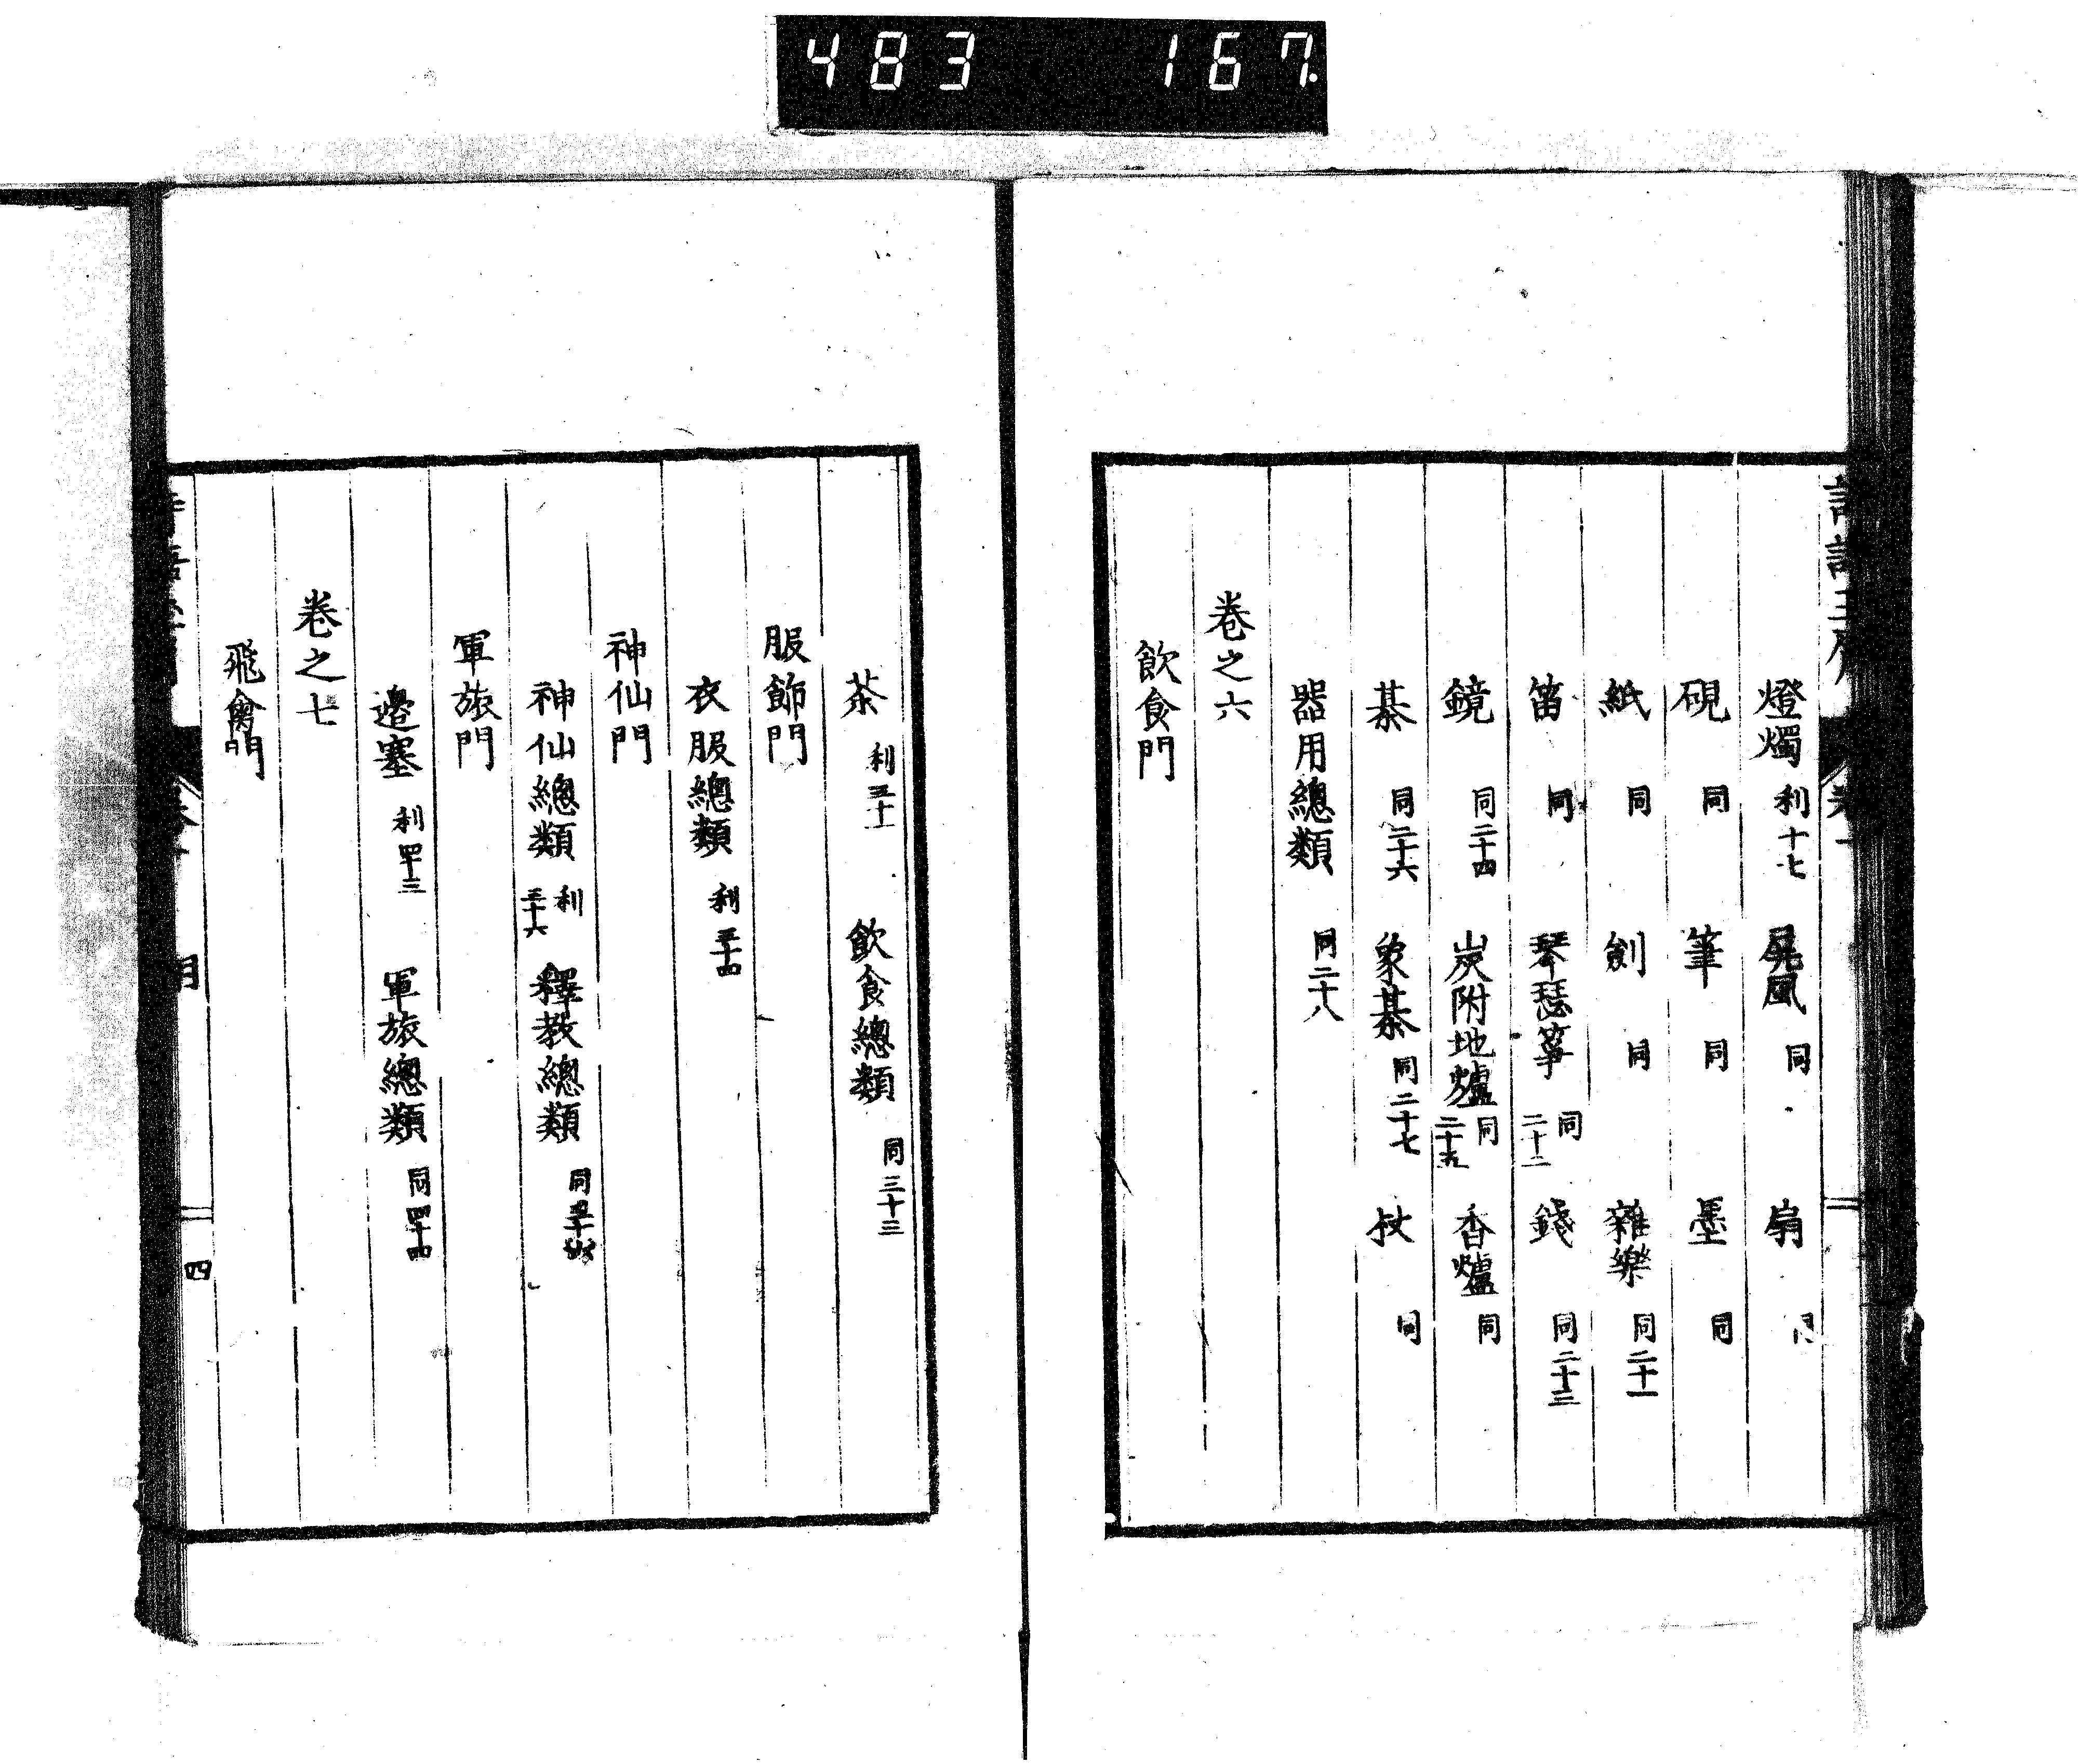 483 167.
燈燭 利十七 屏風 同 扇
硯 同 筆 同 墨 同
紙 同 劍 同 雜樂 同二十一
笛 同 琴瑟箏 同二十二 錢 同二十三
鏡 同二十四 炭附地爐 同二十五 香爐 同
棊 同二十六 象棊 同二十七 杖 同
器用總類 同二十八
卷之六
飲食門
茶 利三十一 飲食總類 同三十三
服飾門
衣服總類 利三十四
神仙門
神仙總類 利三十六 釋教總類 同
軍旅門
邊塞 利四十三 軍旅總類 同四十四
卷之七
飛禽門
四